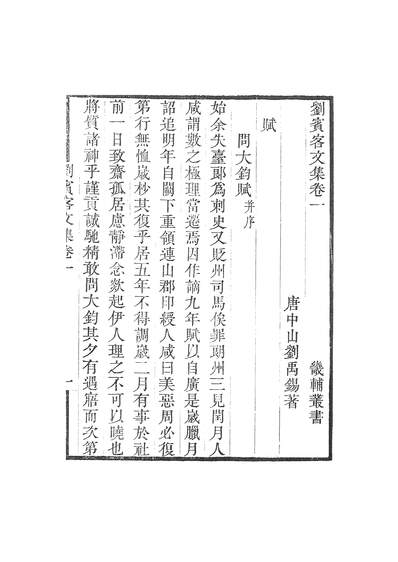 劉賓客文集卷一
畿輔叢書
唐中山劉禹錫著
賦
問大鈞賦并序
始余失臺郎爲刺史又貶州司馬俟罪朗州三見閏月人
咸謂數之極理當遷焉因作謫九年賦以自廣是歲臘月
詔追明年自闕下重領連山郡印綬人咸曰美惡周必復
第行無恤歲杪其復乎居五年不得調歲二月有事於社
前一日致齋孤居慮靜滯念欻起伊人理之不可以曉也
將質諸神乎謹貢誠馳精敢問大鈞其夕有遇寤而次第
劉賓客文集卷一
一